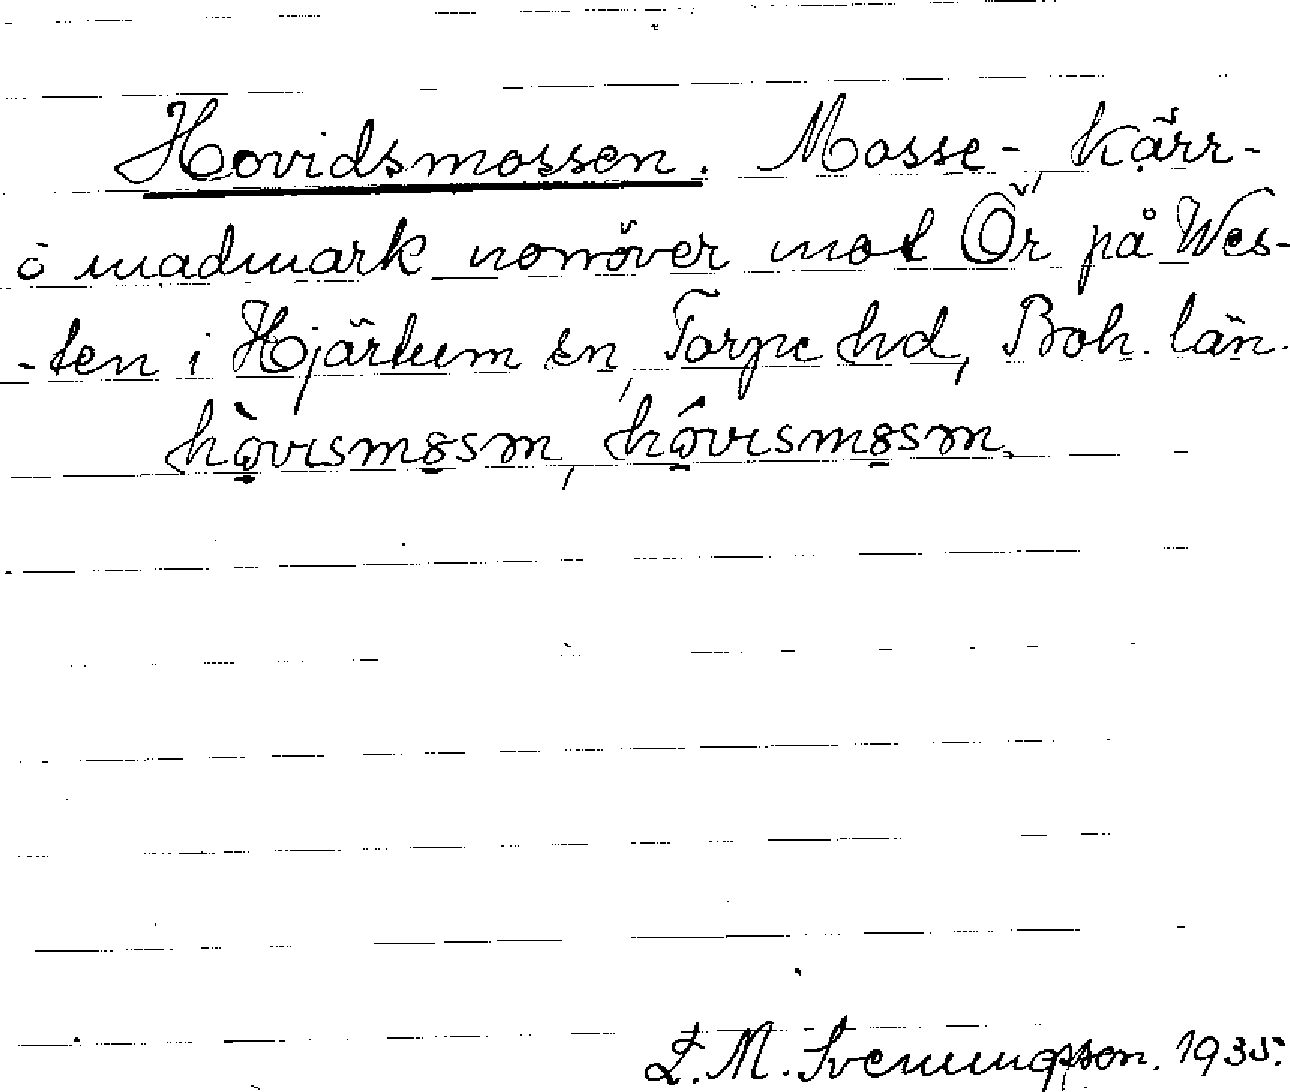 Hovidsmossen. Mosse-, kärr-
o madmark norröver mot Ör på Wes-
-ten i Hjärtum sn, Torpe hd, Boh. län.
hòvısmɷsm,
L. M. Svenungsson. 1935.